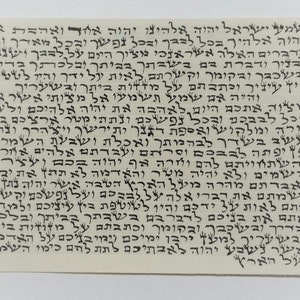 שמע ישראל יהוה אלהינו יהוה אחד ואהבת
יהוה אלהיך בכל לבבך ובכל נפשך ובכל מאדך
הדברים האלה אשר אנכי מצוך היום על לבבך
לבניך ודברת בם בשבתך בביתך ובלכתך
ובשכבך ובקומך וקשרתם לאות על ידך והיו
בין עיניך וכתבתם על מזזות ביתך ובשעריך
והיה אם שמע תשמעו אל מצותי אשר
מצוה אתכם היום לאהבה את יהוה אלהיכם
בכל לבבכם ובכל נפשכם ונתתי מטר ארצכם
יורה ומלקוש ואספת דגנך ותירשך ויצהרך
עשב בשדך לבהמתך ואכלת ושבעת השמרו
פן יפתה לבבכם וסרתם ועבדתם אלהים
והשתחויתם להם וחרה אף יהוה בכם ועצר
השמים ולא יהיה מטר והאדמה לא תתן את
ואבדתם מהרה מעל הארץ הטבה אשר יהוה נתן
ושמתם את דברי אלה על לבבכם ועל נפשכם
אתם לאות על ידכם והיו לטוטפת בין עיניכם
אתם את בניכם לדבר בם בשבתך בביתך
בדרך ובשכבך ובקומך וכתבתם על מזוזות
ובשעריך למען ירבו ימיכם וימי בניכם על
אשר נשבע יהוה לאבתיכם לתת להם כימי השמים
על הארץ